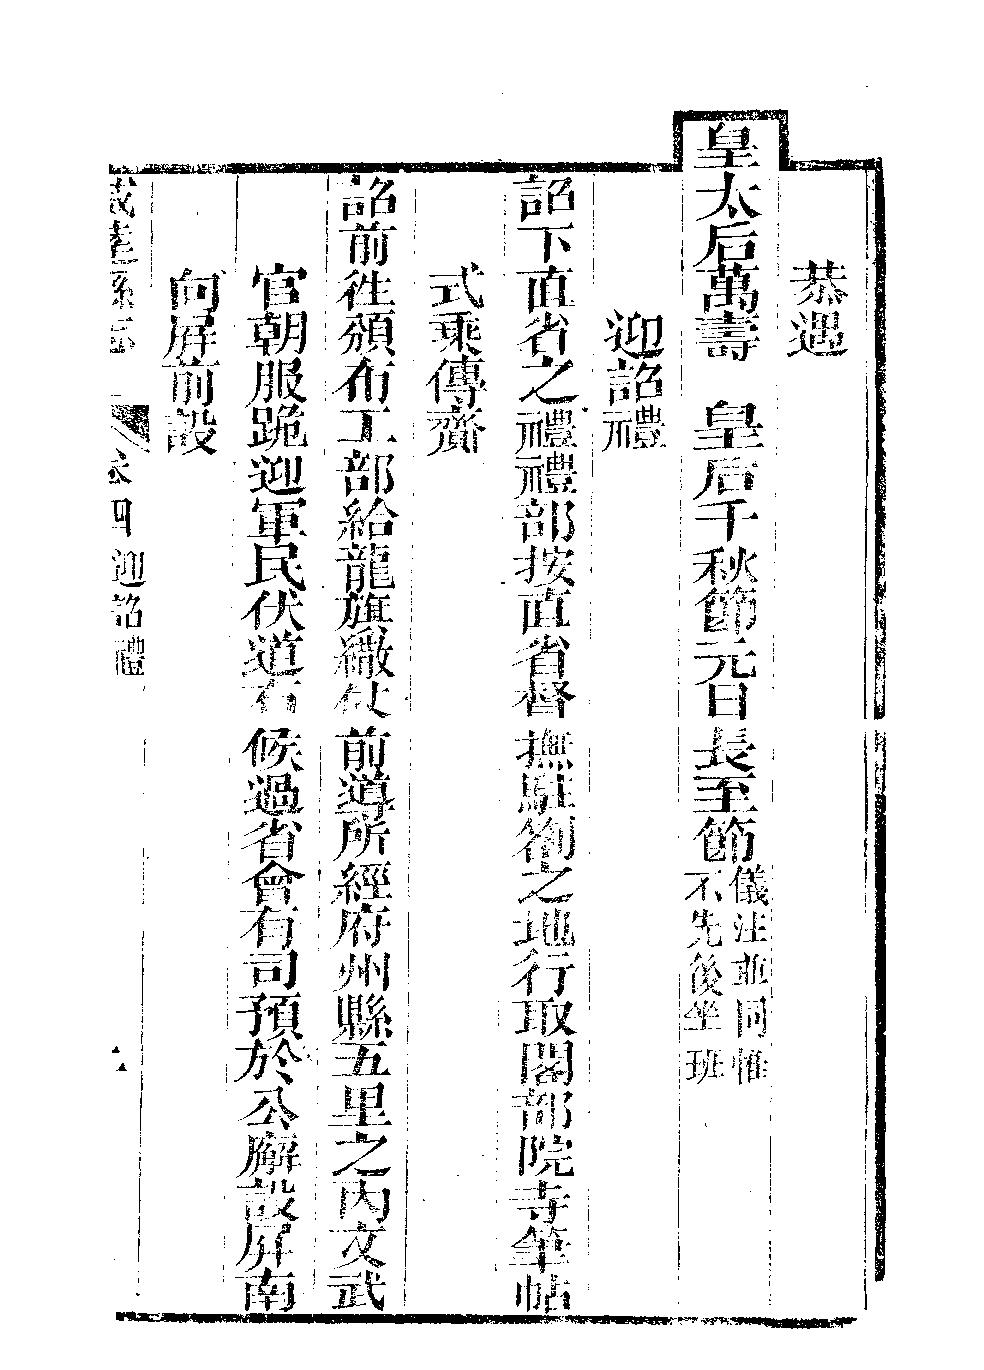 恭遇
皇太后萬壽 皇后千秋節元日長至節儀注並同惟
不先後坐班
迎詔禮
詔下直省之禮禮部按直省督撫駐劄之地行取閣部院寺筆帖
式乘傳齎
詔前徃頒布工部給龍旗繖仗前導所經府州縣五里之內文武
官朝服跪迎軍民伏道右候過省會有司預於公廨設屏南
向屏前設
威遠縣志 卷四 迎詔禮